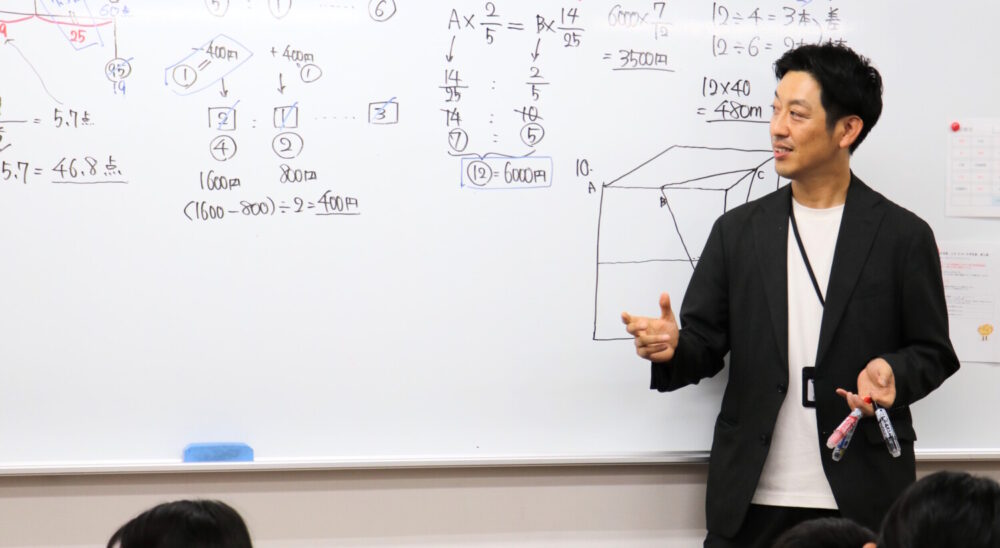 ⑤ : ① ⑥
25
95
19
= 5.7点
5.7 = 46.8点
-400円 +400円
① ①
2 : 1 ‥‥‥ 3
④ ②
1600円 800円
(1600-800)÷2=400円
A×2/5 = B×14/25
14/25 : 2/5
14 : 10
⑦ : ⑤
⑫=6000円
6000×7/12
= 3500円
12÷4=3本 差
12÷6=2本
12×40
= 480m
10.
A
B
C